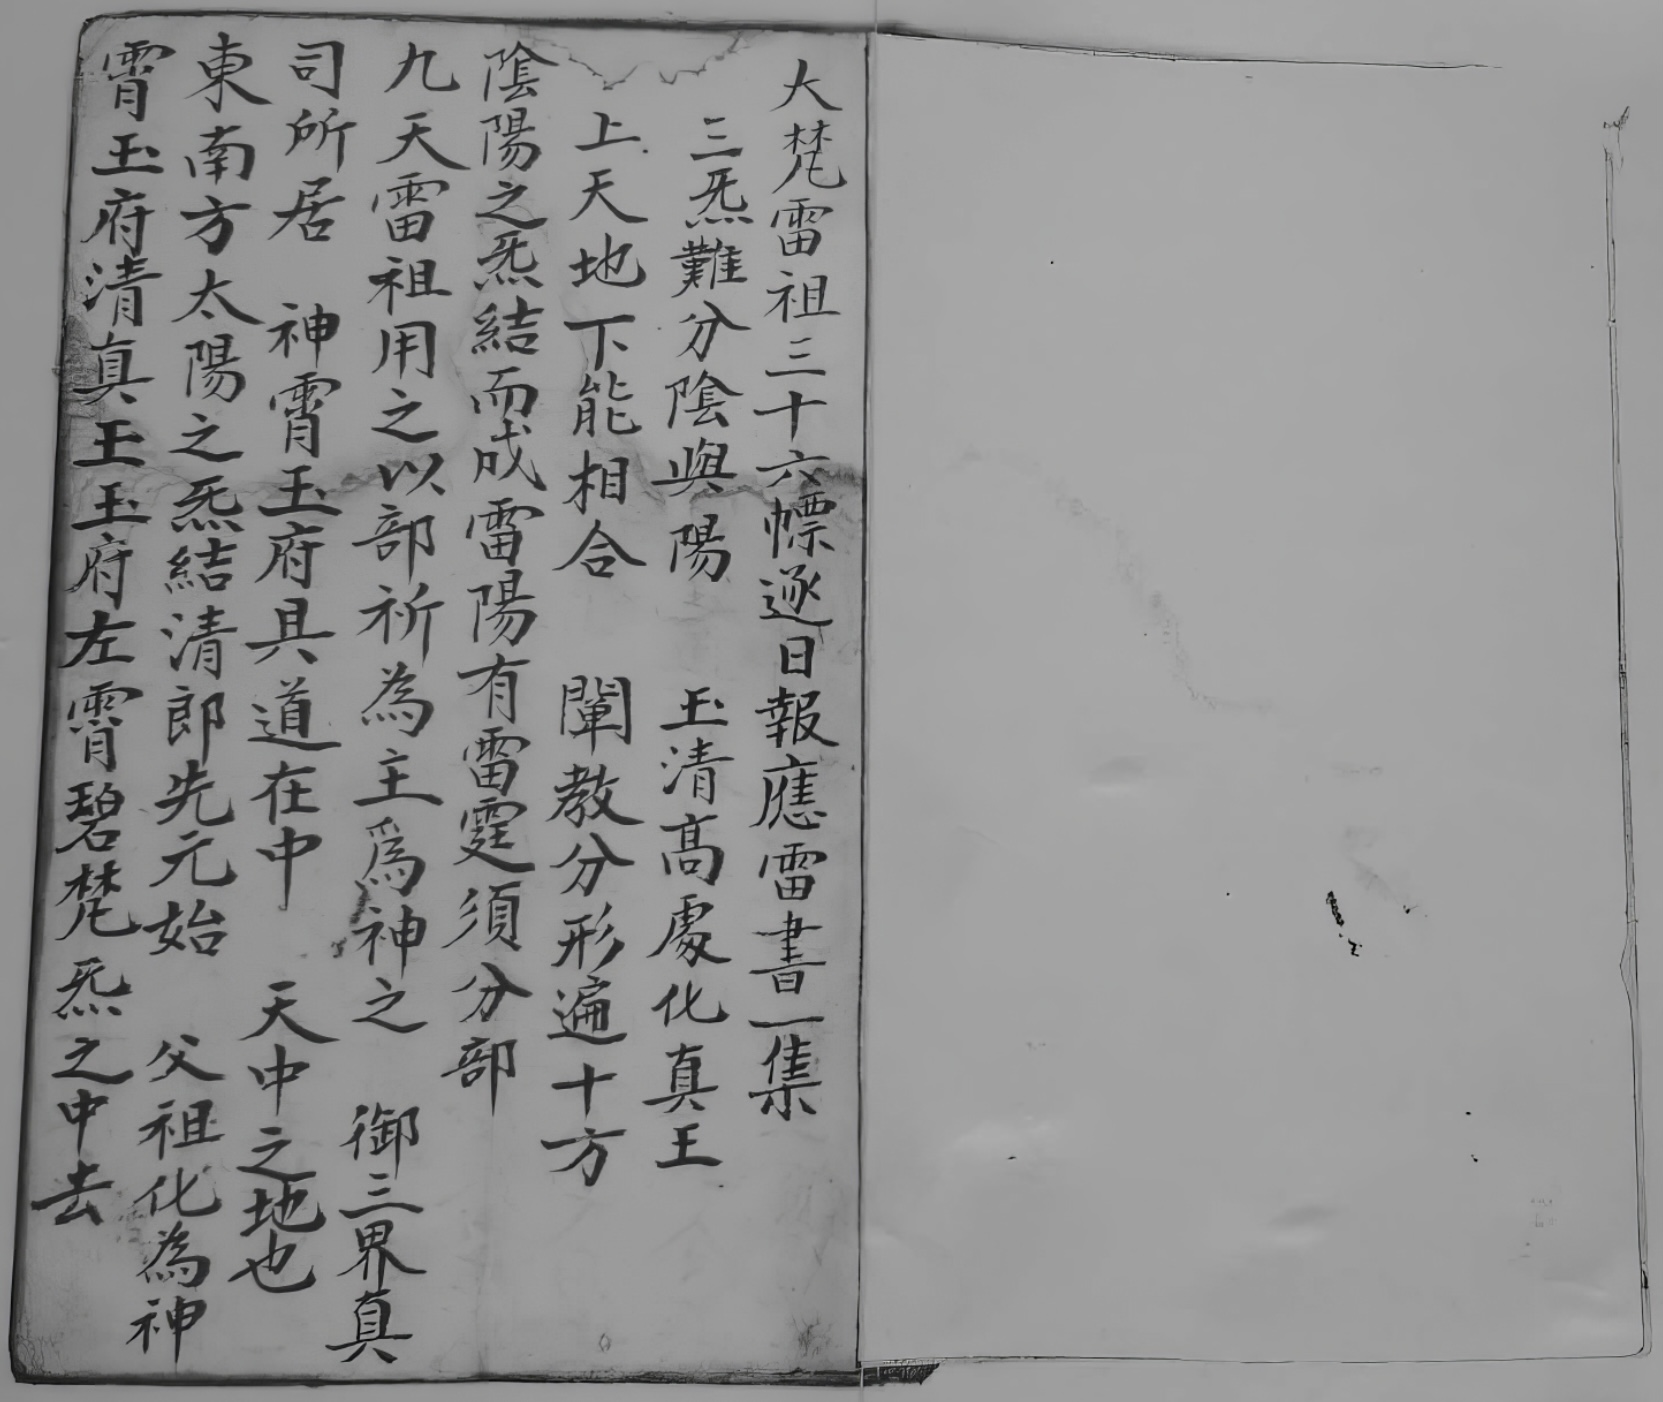 大梵雷祖三十六幖逐日報應雷書一集
三炁難分陰與陽 玉清高處化真王
上天地下能相合 闡教分形遍十方
陰陽之炁結而成雷陽有雷霆須分部
九天雷祖用之以部祈為主爲神之 御三界真
司所居 神霄玉府具道在中 天中之地也
東南方太陽之炁結清郎先元始 父祖化為神
霄玉府清真王玉府左霄碧梵炁之中去